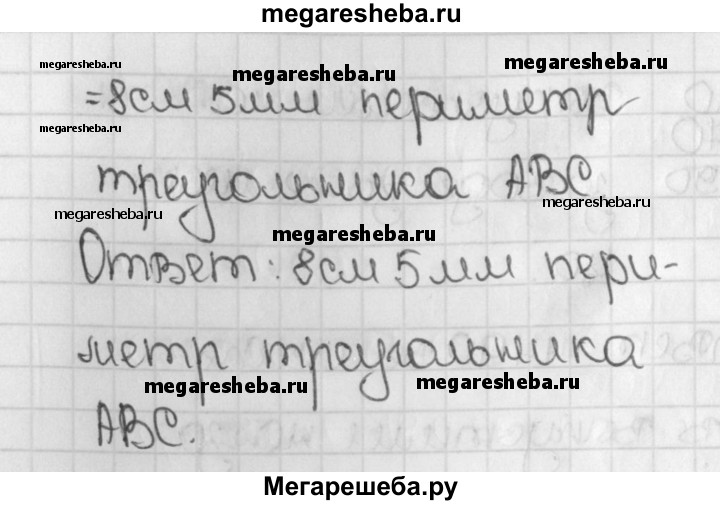 megaresheba.ru
megaresheba.ru megaresheba.ru megaresheba.ru
=8см 5мм периметр
megaresheba.ru
треугольника ABC
megaresheba.ru megaresheba.ru
megaresheba.ru
Ответ: 8см 5мм пери-
метр треугольника
megaresheba.ru megaresheba.ru
ABC.
Мегарешеба.ру